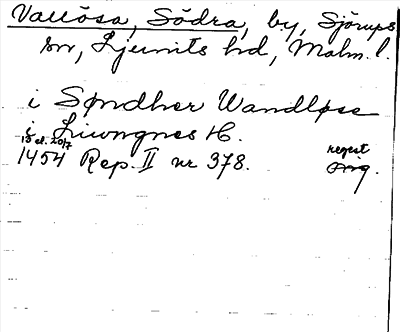 Vallösa, Södra, by, Sjörups
sn, Ljunits hd, Malm. l.
i Søndher Wandløse
i Liwngnes H.
18 el. 20/7
1454 Rep. II nr 378.
regest
orig.